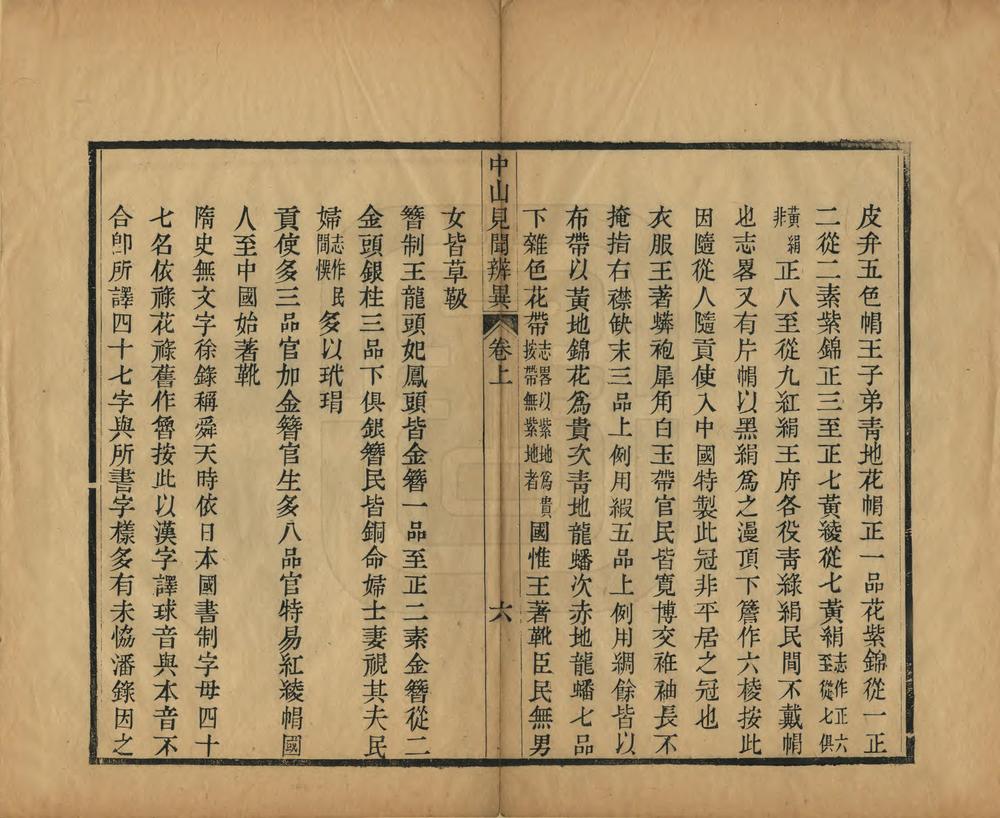 皮弁五色帽王子弟靑地花帽正一品花紫錦從一正
二從二素紫錦正三至正七黃綾從七黃絹志作正六至從七俱
黃絹非正八至從九紅絹王府各役靑綠絹民間不戴帽
也志畧又有片帽以黑絹爲之漫頂下簷作六棱按此
因隨從人隨貢使入中國特製此冠非平居之冠也
衣服王著蟒袍犀角白玉帶官民皆寬博交袵袖長不
掩指右襟缺末三品上例用緞五品上例用綢餘皆以
布帶以黃地錦花爲貴次靑地龍蟠次赤地龍蟠七品
下雜色花帶志畧以紫地爲貴按帶無紫地者國惟王著靴臣民無男
中山見聞辨異 卷上 六
女皆草靸
簪制王龍頭妃鳳頭皆金簪一品至正二素金簪從二
金頭銀柱三品下俱銀簪民皆銅命婦士妻視其夫民
婦志作民間悞多以玳瑁
貢使多三品官加金簪官生多八品官特易紅綾帽國
人至中國始著靴
隋史無文字徐錄稱舜天時依日本國書制字母四十
七名依祿花祿舊作魯按此以漢字譯球音與本音不
合卽所譯四十七字與所書字樣多有未恊潘錄因之